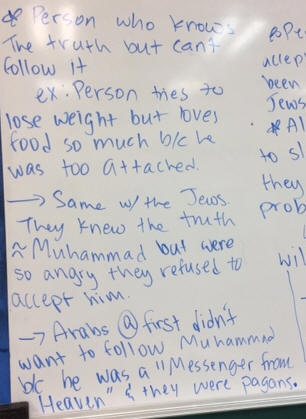 * Person who knows
The truth but can't
follow it
ex: Person tries to
lose weight but loves
food so much b/c he
was too attached.
→ Same w/ the Jews.
They knew the truth
≈ Muhammad but were
so angry they refused to
accept him.
→ Arabs @ first didn't
want to follow Muhammad
b/c he was a "Messenger from
Heaven" & they were pagans.
accep
been
Jew
* Al
to sl
they
prob
wil